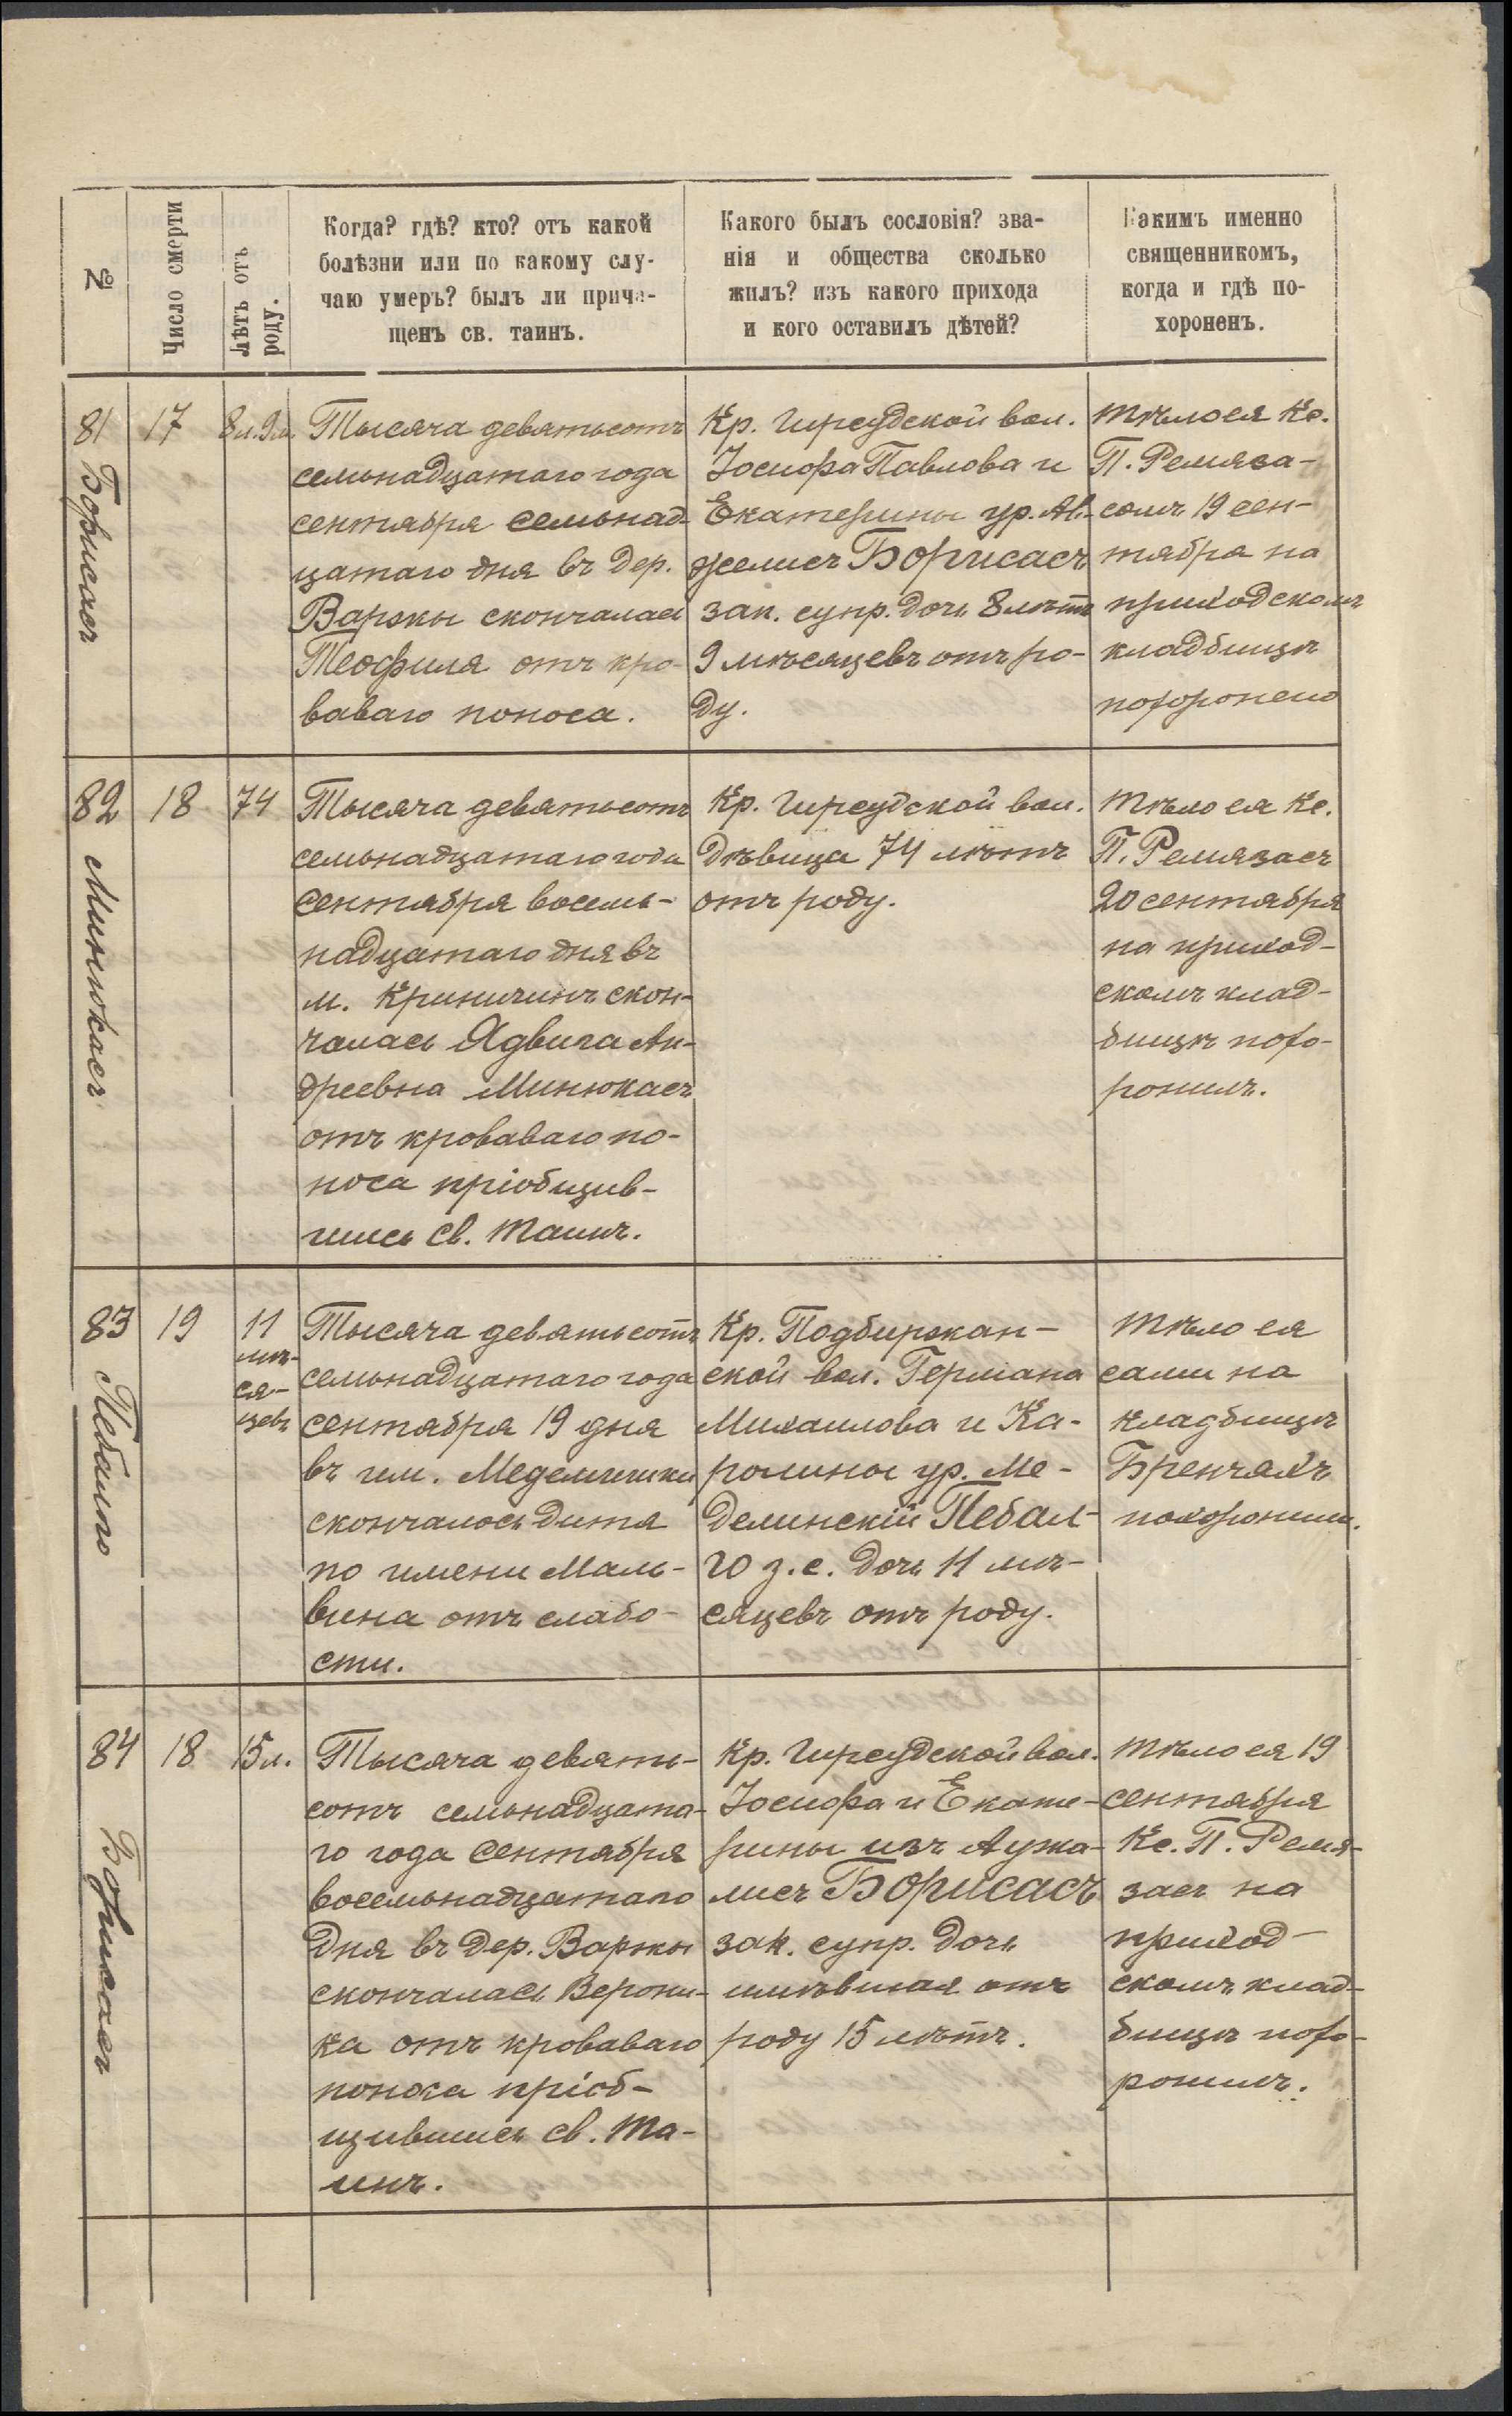 №
Число смерти
Лѣтъ отъ
роду.
Когда? гдѣ? кто? отъ какой
болѣзни или по какому слу-
чаю умеръ? былъ ли прича-
щенъ св. таинъ.
Какого былъ сословія? зва-
нія и общества сколько
жилъ? изъ какого прихода
и кого оставилъ дѣтей?
Какимъ именно
священникомъ,
когда и гдѣ по-
хороненъ.
81
Борисасъ
17
8л.9м.
Тысяча девятьсотъ
семьнадцатаго года
сентября семьнад-
цатаго дня въ дер.
Варжы скончалась
Теофиля отъ кро-
ваваго поноса.
Кр. Гиреудской вол.
Іосифа Павлова и
Екатерины ур.
Борисасъ
зак. супр. дочь 8 лѣтъ
9 мѣсяцевъ отъ ро-
ду.
тѣло ея Кс.
П. Ремяза-
сомъ 19 сен-
тября на
приходскомъ
кладбищѣ
похоронено
82
Минюкасъ
18
74
Тысяча девятьсотъ
семьнадцатаго года
сентября восемь-
надцатаго дня въ
м. Криничинѣ скон-
чалась Ядвига Ан-
дреевна Минюкасъ
отъ кроваваго по-
носа пріобщив-
шись св. Таинъ.
Кр. Гиреудской вол.
Дѣвица 74 лѣтъ
отъ роду.
тѣло ея Кс.
П. Ремязасъ
20 сентября
на приход-
скомъ клад-
бищѣ похо-
ронилъ.
83
Пебалго
19
11
мѣ-
ся-
цевъ
Тысяча девятьсотъ
семьнадцатаго года
сентября 19 дня
въ им.
скончалось дитя
по имени Маль-
вина отъ слабо-
сти.
Кр. Подбиржан-
ской вол. Германа
Михаилова и Ка-
ролины ур. Ме-
делинскій Пебал-
го з.с. дочь 11 мѣ-
сяцевъ отъ роду.
тѣло ея
сами на
кладбищѣ
Бренчяхъ
похоронили.
84
Борисасъ
18
15л.
Тысяча девять-
сотъ семьнадцата-
го года сентября
восемьнадцатаго
дня въ дер. Варжы
скончалась Верони-
ка отъ кроваваго
поноса пріоб-
щившись св. Та-
инъ.
Кр. Гиреудской вол.
Іосифа и Екате-
рины изъ Аужа-
лисъ Борисасъ
зак. супр. дочь
имѣвшая отъ
роду 15 лѣтъ.
тѣло ея 19
сентября
Кс. П. Ремя-
засъ на
приход-
скомъ клад-
бищѣ похо-
ронилъ.